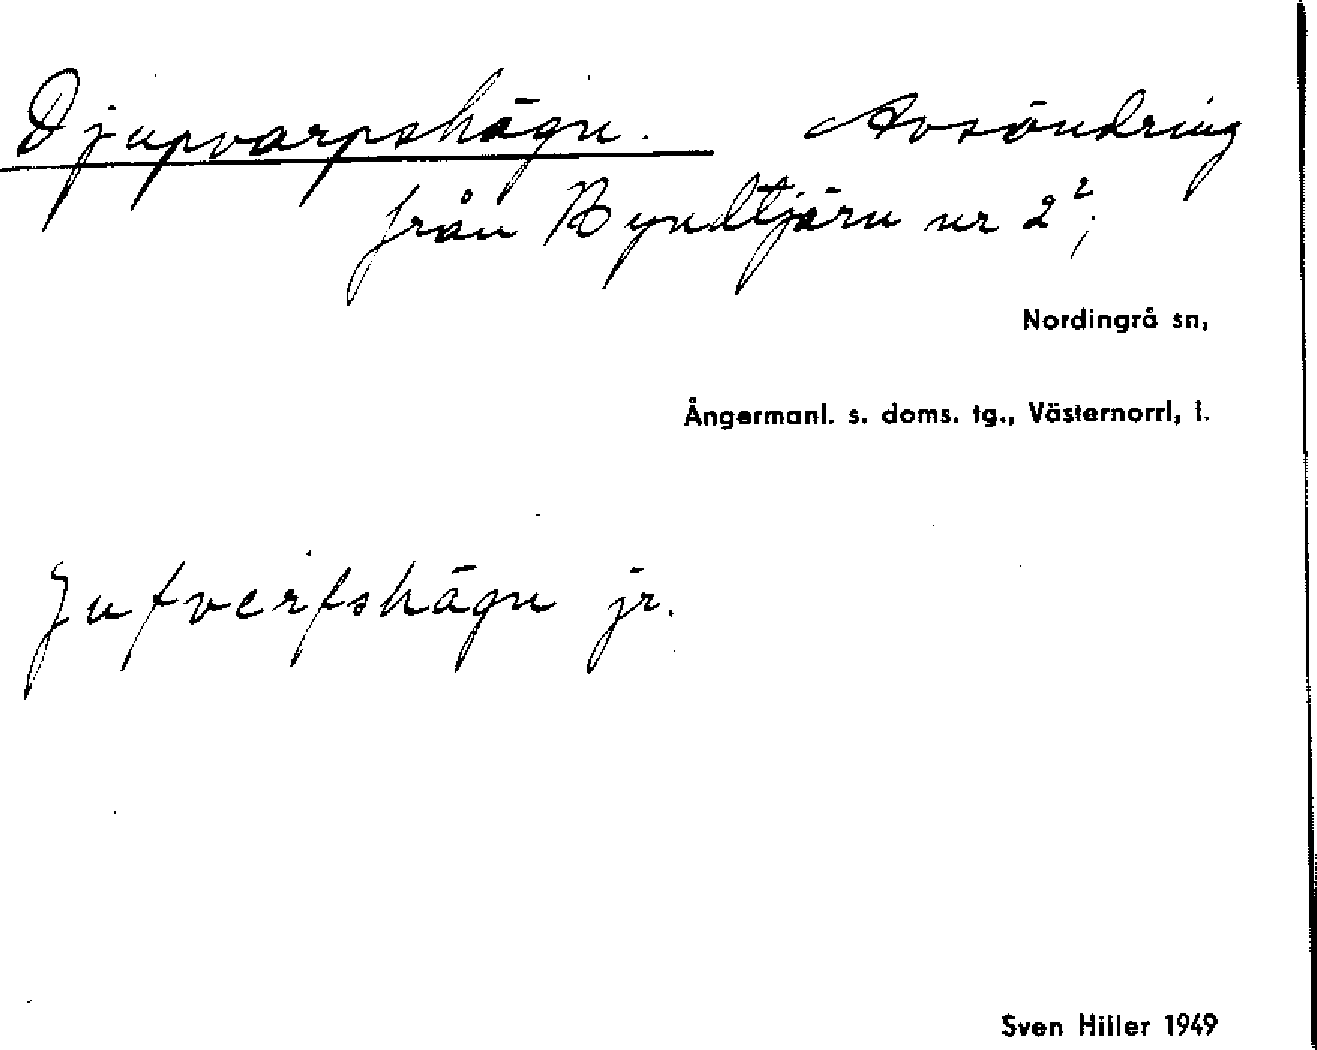 Djupvarpshägn. Avsöndring
från Byndtjärn nr 2²;
Nordingrå sn,
Ångermanl. s. doms. tg., Västernorrl, l.
Jufverfshägn jr.
Sven Hiller 1949